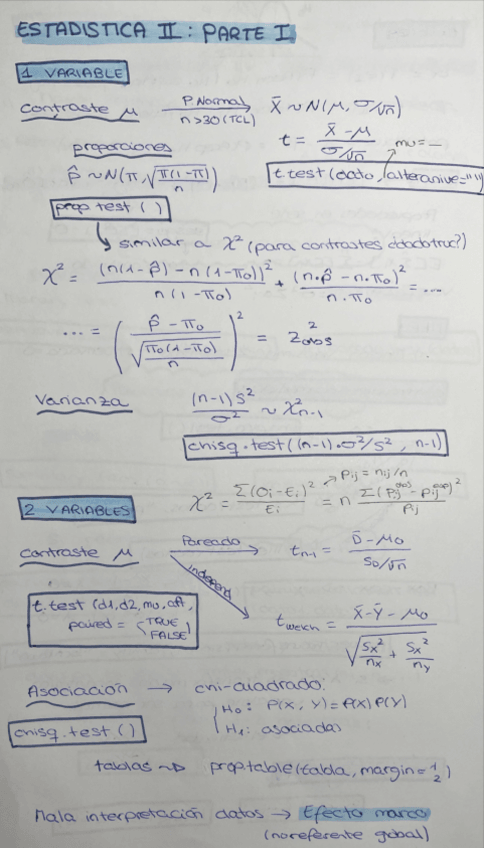 ESTADISTICA II: PARTE I
1 VARIABLE
Contraste μ P. Normal n>30 (TCL) X̄ ~ N(μ, σ/√n)
t = (X̄ - μ)/(σ/√n) mu = —
proporciones
p̂ ~ N(π, √(π(1-π)/n)) t.test(dato, alternative="")
prop.test( )
similar a χ² (para contrastes
χ² = (n(1-p̂) - n(1-π₀))²/(n(1-π₀)) + (n·p̂ - n·π₀)²/(n·π₀) = ...
... = ((p̂ - π₀)/√(π₀(1-π₀)/n))² = Z²obs
Varianza (n-1)S²/σ² ~ χ²n-1
chisq.test((n-1)·σ²/S², n-1)
pij = nij/n
χ² = Σ(Oi-Ei)²/Ei = n Σ(pij^obs - pij^esp)²/pij
2 VARIABLES
Contraste μ Pareado tn-1 = (D̄ - μ₀)/(SD/√n)
Independ
t.test(d1, d2, mu, alt,
paired = {TRUE
FALSE)
twelch = (X̄ - Ȳ - μ₀)/√(Sx²/nx + Sx²/ny)
Asociación → chi-cuadrado:
{H₀: P(X, Y) = P(X) P(Y)
chisq.test( ) H₁: asociadas
tablas ~> prop.table(tabla, margin = 1/2)
Mala interpretación datos → Efecto marco
(no referente global)